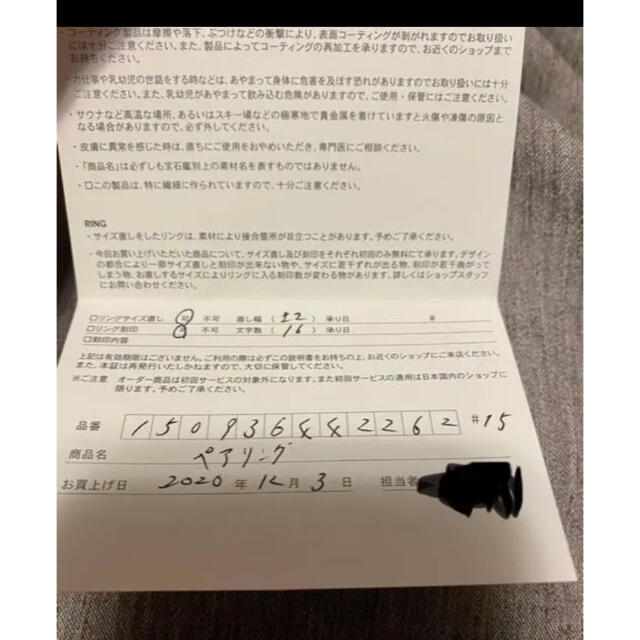 ・コーティング製品は摩擦や落下、ぶつけなどの衝撃により、表面コーティングが剥がれますのでお取り扱い
には十分ご注意ください。また、製品によってコーティングの再加工を承りますので、お近くのショップまで
お持ちください。
・力仕事や乳幼児の世話をする時などは、あやまって身体に危害を及ぼす恐れがありますのでお取り扱いには十分
ご注意ください。また、乳幼児があやまって飲み込む危険がありますので、ご使用・保管にはご注意ください。
・サウナなど高温な場所、あるいはスキー場などの極寒地で貴金属を着けていますと火傷や凍傷の原因と
なる場合がありますので、必ず外してください。
・皮膚に異常を感じた時は、直ちにご使用をおやめいただき、専門医にご相談ください。
・「商品名」は必ずしも宝石鑑別上の素材名を表すものではありません。
・□この製品は、特に繊細に作られていますので、十分ご注意ください。
RING
・サイズ直しをしたリングは、素材により接合箇所が目立つことがあります。予めご了承ください。
・今回お買い上げいただいた商品について、サイズ直し及び刻印をそれぞれ初回のみ無料にて承ります。デザイン
の都合により一部サイズ直しと刻印が出来ない物や、サイズに若干ずれが出る物、刻印が若干曲がって
しまう物、お直しするサイズによりリングに入る刻印数が変わる物があります。詳しくはショップスタッフ
にお問い合わせください。
□リングサイズ直し 可 不可 直し幅 ( ±2 ) 承り日 #
□リング刻印 可 不可 文字数 ( 16 ) 承り日
□刻印内容
上記は有効期限はございません。ご利用の際は必ずこの説明書をお持ちの上、お近くのショップにご来店ください。
また、本証は再発行いたしかねますので、大切に保管してください。
※ご注意 オーダー商品は初回サービスの対象外になります。また初回サービスの適用は日本国内のショップに
限ります。予めご了承ください。
品番 150936442262 #15
商品名 ペアリング
お買上げ日 2020 年 12 月 3 日 担当者